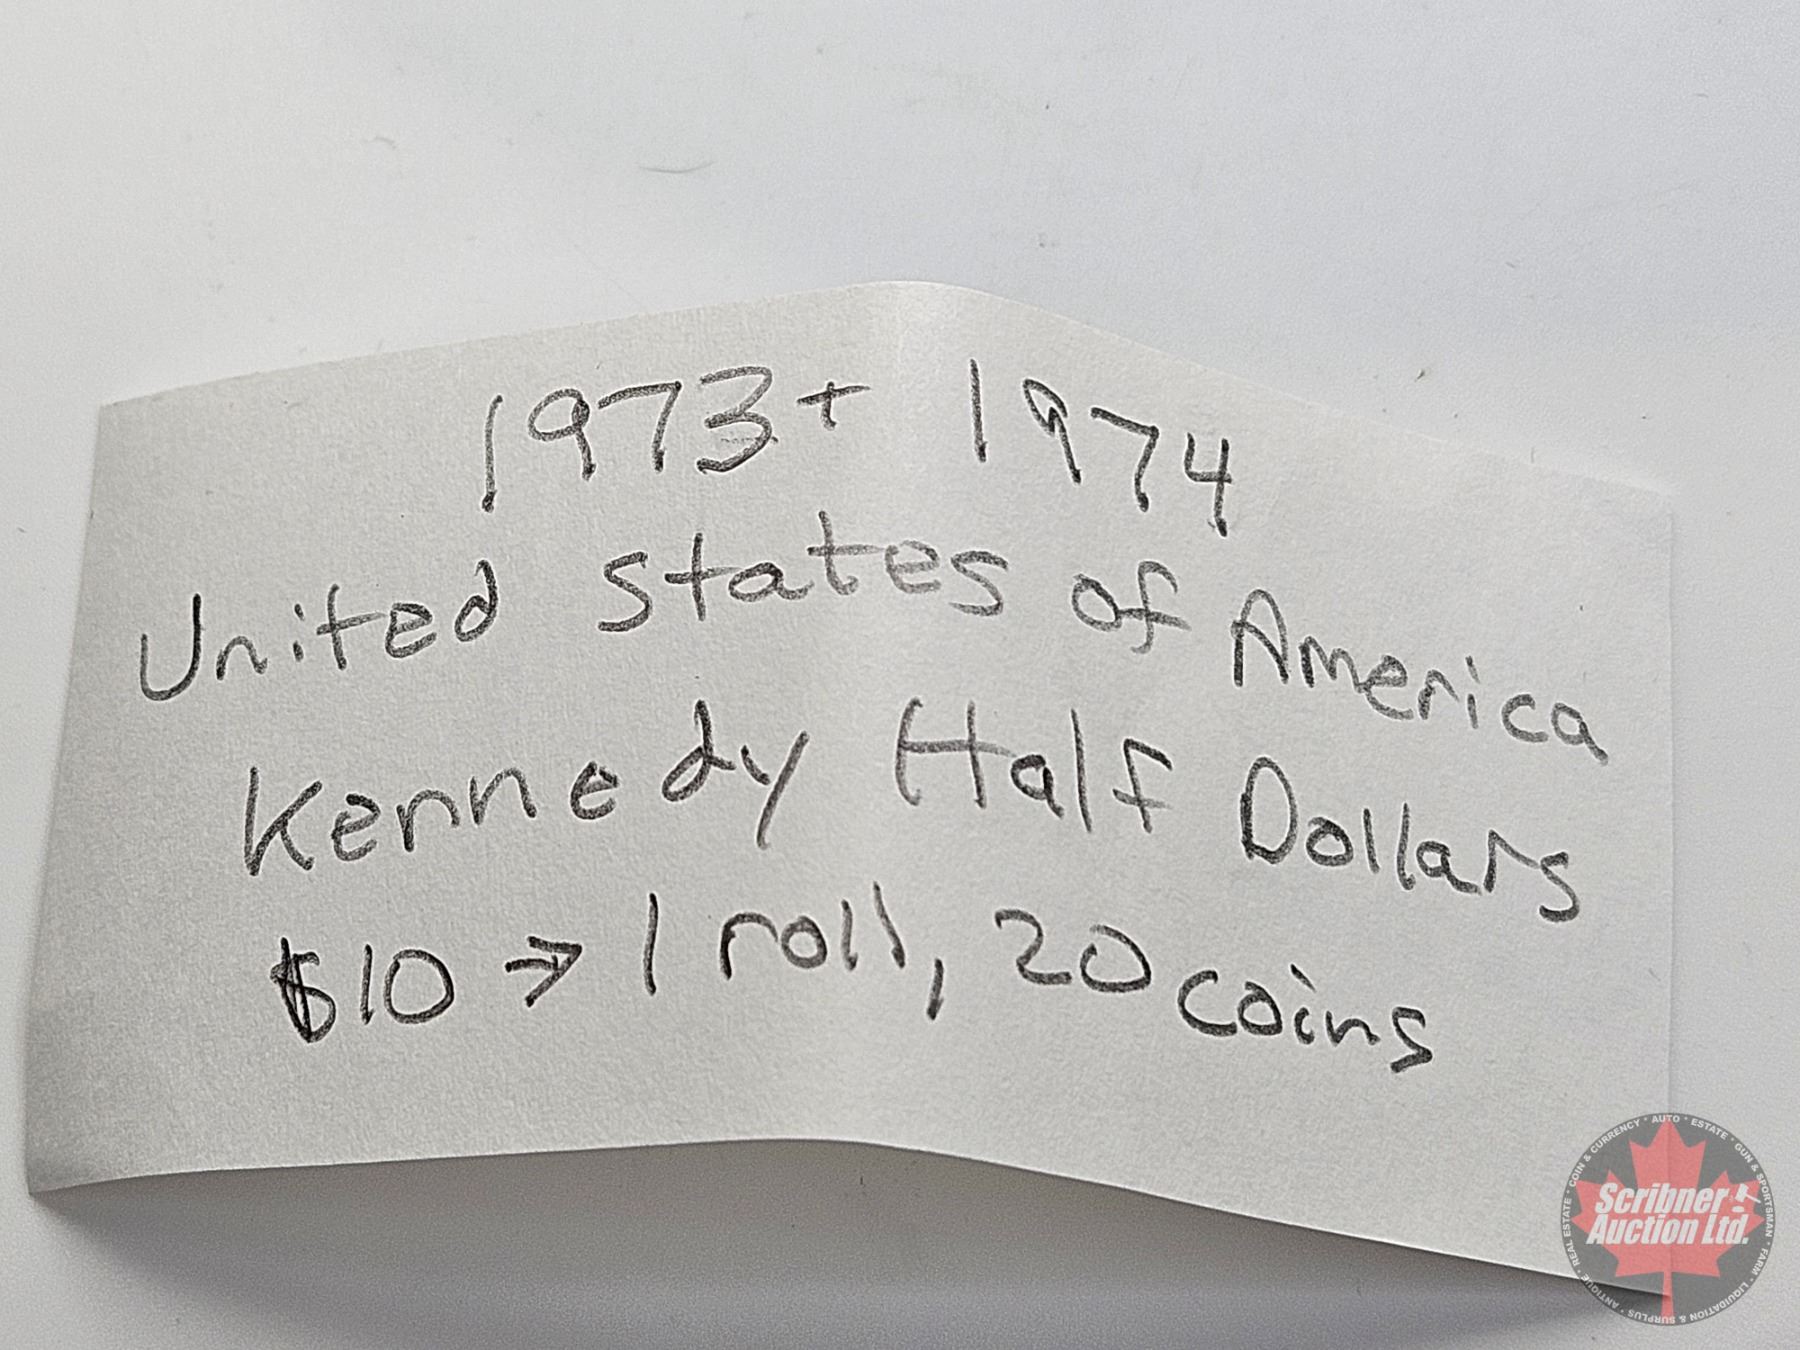 1973 + 1974
United States of America
Kennedy Half Dollars
$10 → 1 roll, 20 coins
Scribner
Auction Ltd.
COIN & CURRENCY · AUTO · ESTATE · GUN & SPORTSMAN · FARM · LIQUIDATION & SURPLUS · ANTIQUE · REAL ESTATE ·